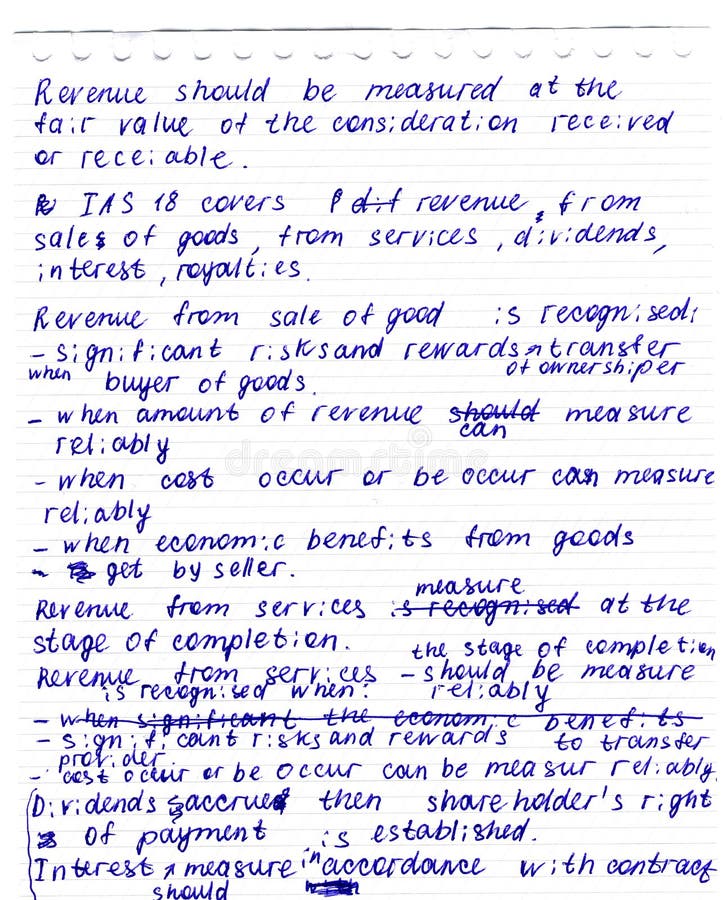 Revenue should be measured at the
fair value of the consideration received
or receiable.
IAS 18 covers dif revenue, from
sales of goods, from services, dividends,
interest, royalties.
Revenue from sale of good is recognised:
- significant risks and rewards transfer
when buyer of goods. of ownershiper
- when amount of revenue should measure
can
reliably
- when cost occur or be occur can measure
reliably
- when economic benefits from goods
- get by seller.
measure
Revenue from services is recognised at the
stage of completion.
the stage of completion
Revenue from services - should be measure
is recognised when: reliably
- when significant the economic benefits
- significant risks and rewards to transfer
provider.
- cost occur or be occur can be measur reliably.
Dividends accrued then shareholder's right
of payment is established.
Interest measure in accordance with contract
should
dreamstime